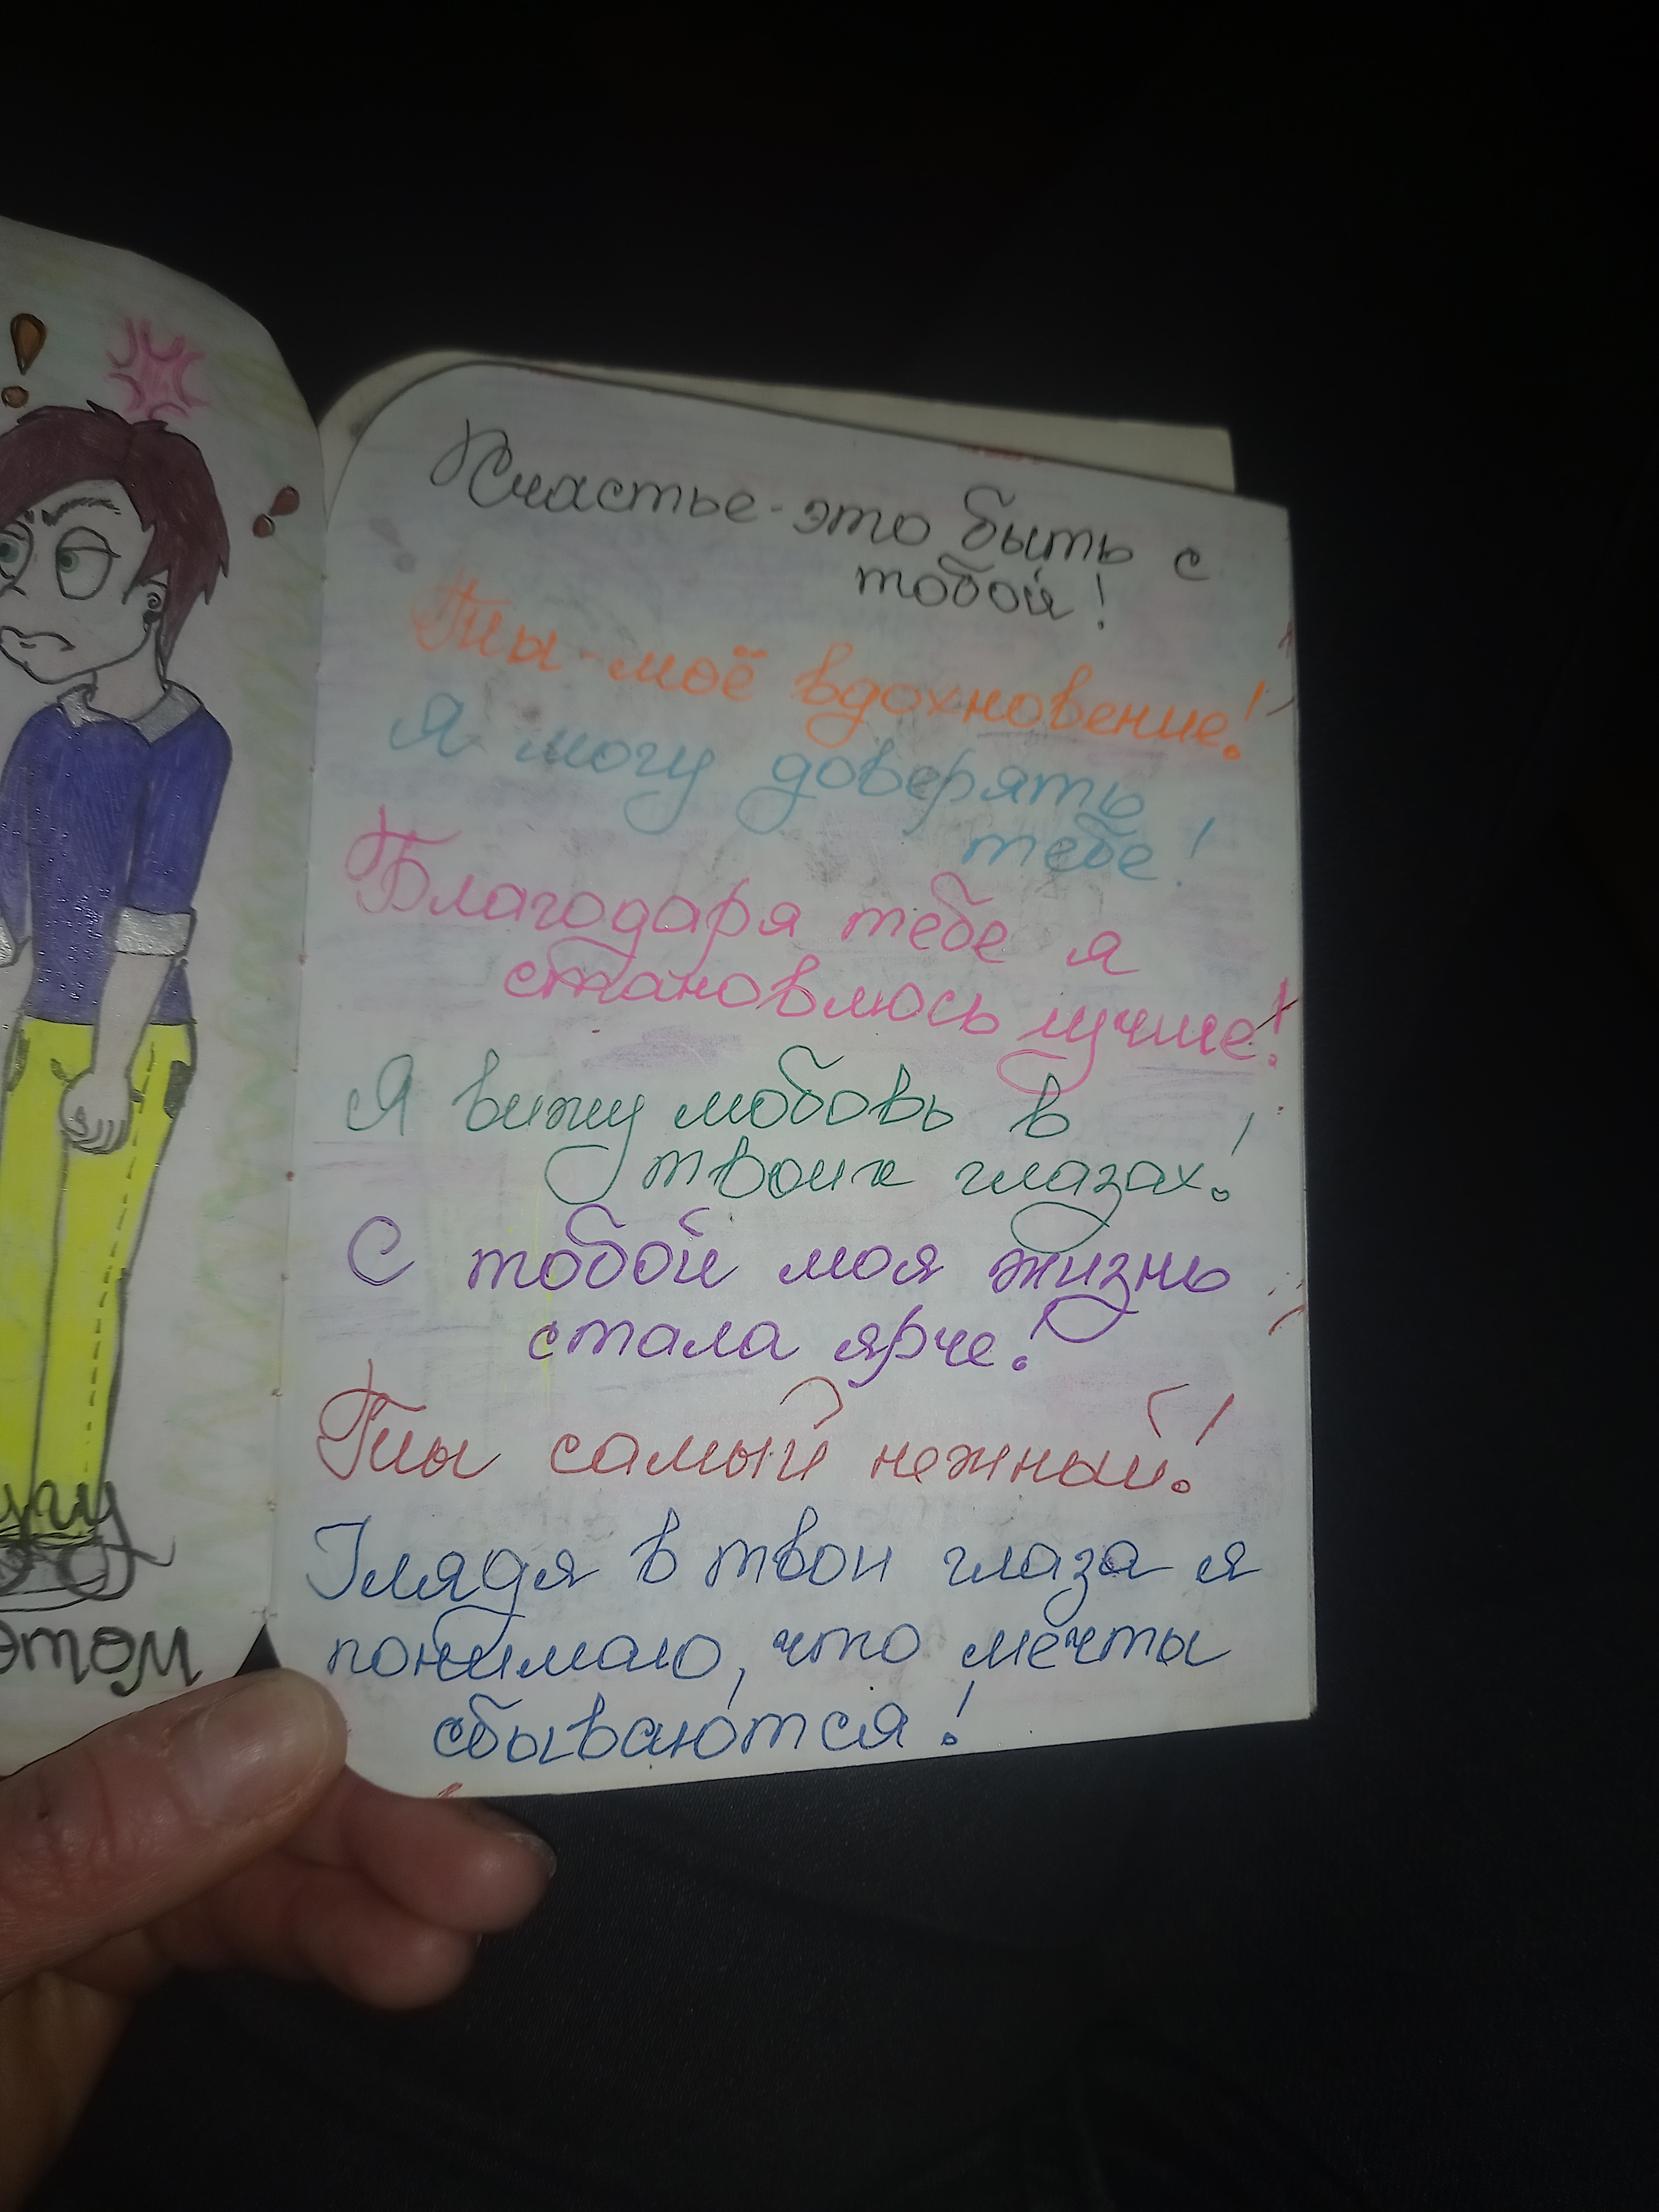 Счастье - это быть с
тобой!
Ты - моё вдохновение!
Я могу доверять
тебе!
Благодаря тебе я
становлюсь лучше!
Я вижу любовь в
твоих глазах!
С тобой моя жизнь
стала ярче!
Ты самый нежный!
Глядя в твои глаза я
понимаю, что мечты
сбываются!
этом